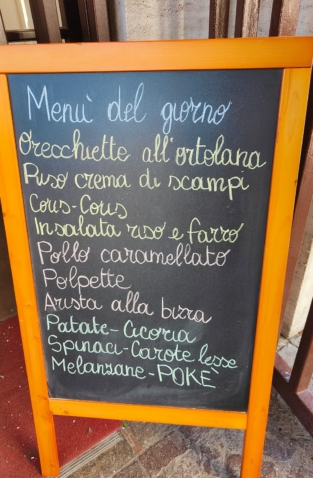 Menù del giorno
Orecchiette all'ortolana
Riso crema di scampi
Cous-Cous
Insalata riso e farro
Pollo caramellato
Polpette
Arista alla birra
Patate-Cicoria
Spinaci-Carote lesse
Melanzane-POKÈ